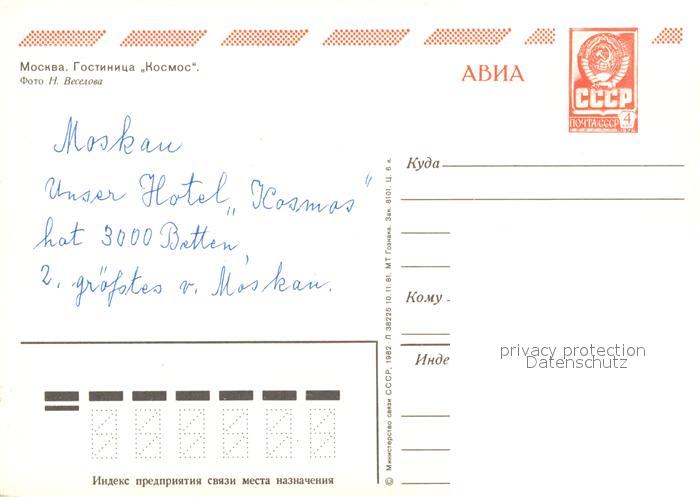 Москва. Гостиница „Космос“.
Фото Н. Веселова
АВИА
СССР
ПОЧТА СССР 4
Moskau
Unser Hotel „Kosmos“
hat 3000 Betten
2. größtes v. Moskau.
Куда
Кому
Инде
privacy protection
Datenschutz
Индекс предприятия связи места назначения
© Министерство связи СССР, 1982. Л 38225 10.11.81. МТ Гознака. Зак. 8101. Ц. 6 к.